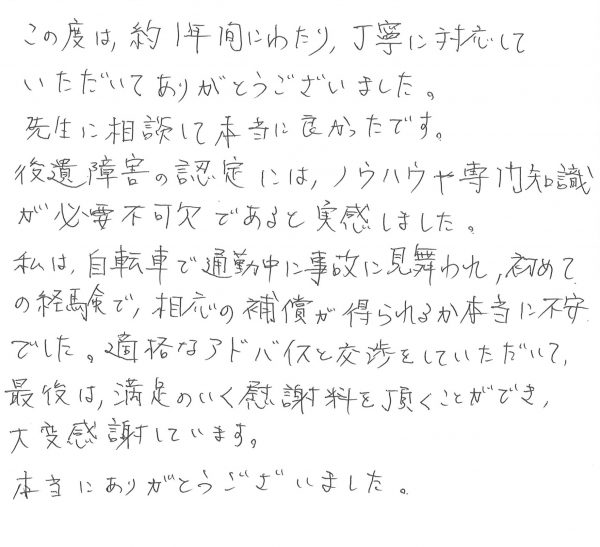 この度は,約1年間にわたり,丁寧に対応して
いただいてありがとうございました。
先生に相談して本当に良かったです。
後遺障害の認定には,ノウハウや専門知識
が必要不可欠であると実感しました。
私は,自転車で通勤中に事故に見舞われ,初めて
の経験で,相応の補償が得られるか本当に不安
でした。適格なアドバイスと交渉をしていただいて,
最後は,満足のいく慰謝料を頂くことができ,
大変感謝しています。
本当にありがとうございました。